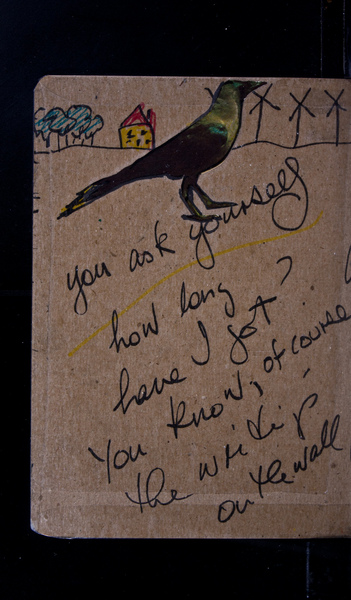 you ask yourself
how long ?
have I got
You know, of course
the writing
on the wall